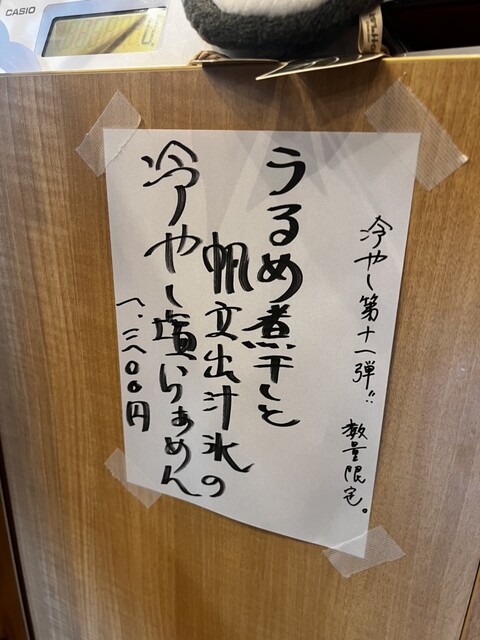 CASIO
冷やし第十一弾!!
数量限定。
うるめ煮干しと
帆立出汁氷の
冷やし塩らぁめん
一、三〇〇円